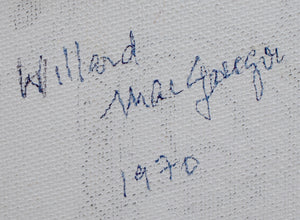 Willard
MacGregor
1970